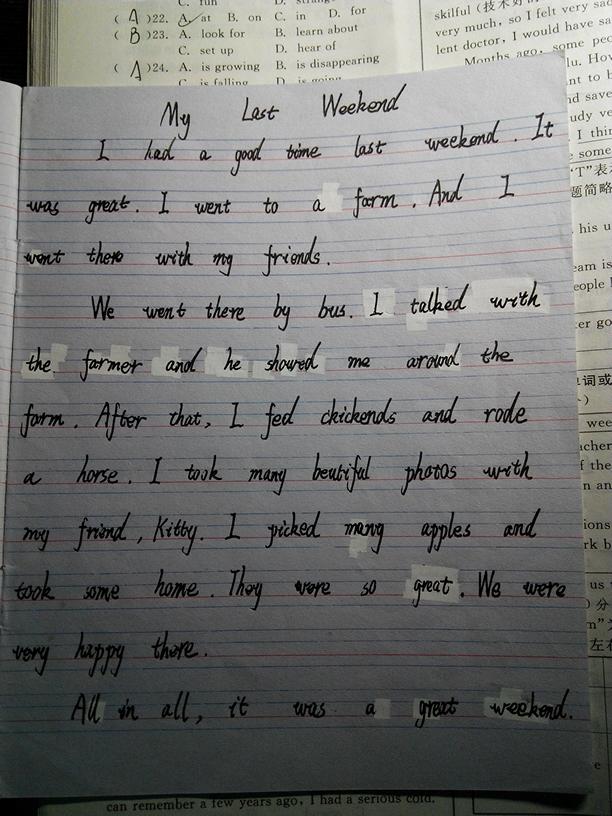 C. fun D. strange
( A )22. A. at B. on C. in D. for
( B )23. A. look for B. learn about
C. set up D. hear of
( A )24. A. is growing B. is disappearing
C. is falling D. is going
skilful (技术好的
very much, so I felt very sa
lent doctor, I would have sa
Months ago, some peo
My Last Weekend
I had a good time last weekend. It
was great. I went to a farm. And I
went there with my friends.
We went there by bus. I talked with
the farmer and he showed me around the
farm. After that, I fed ckickends and rode
a horse. I took many beutiful photos with
my friend, Kitty. I picked many apples and
took some home. They were so great. We were
very happy there.
All in all, it was a great weekend.
can remember a few years ago, I had a serious cold.